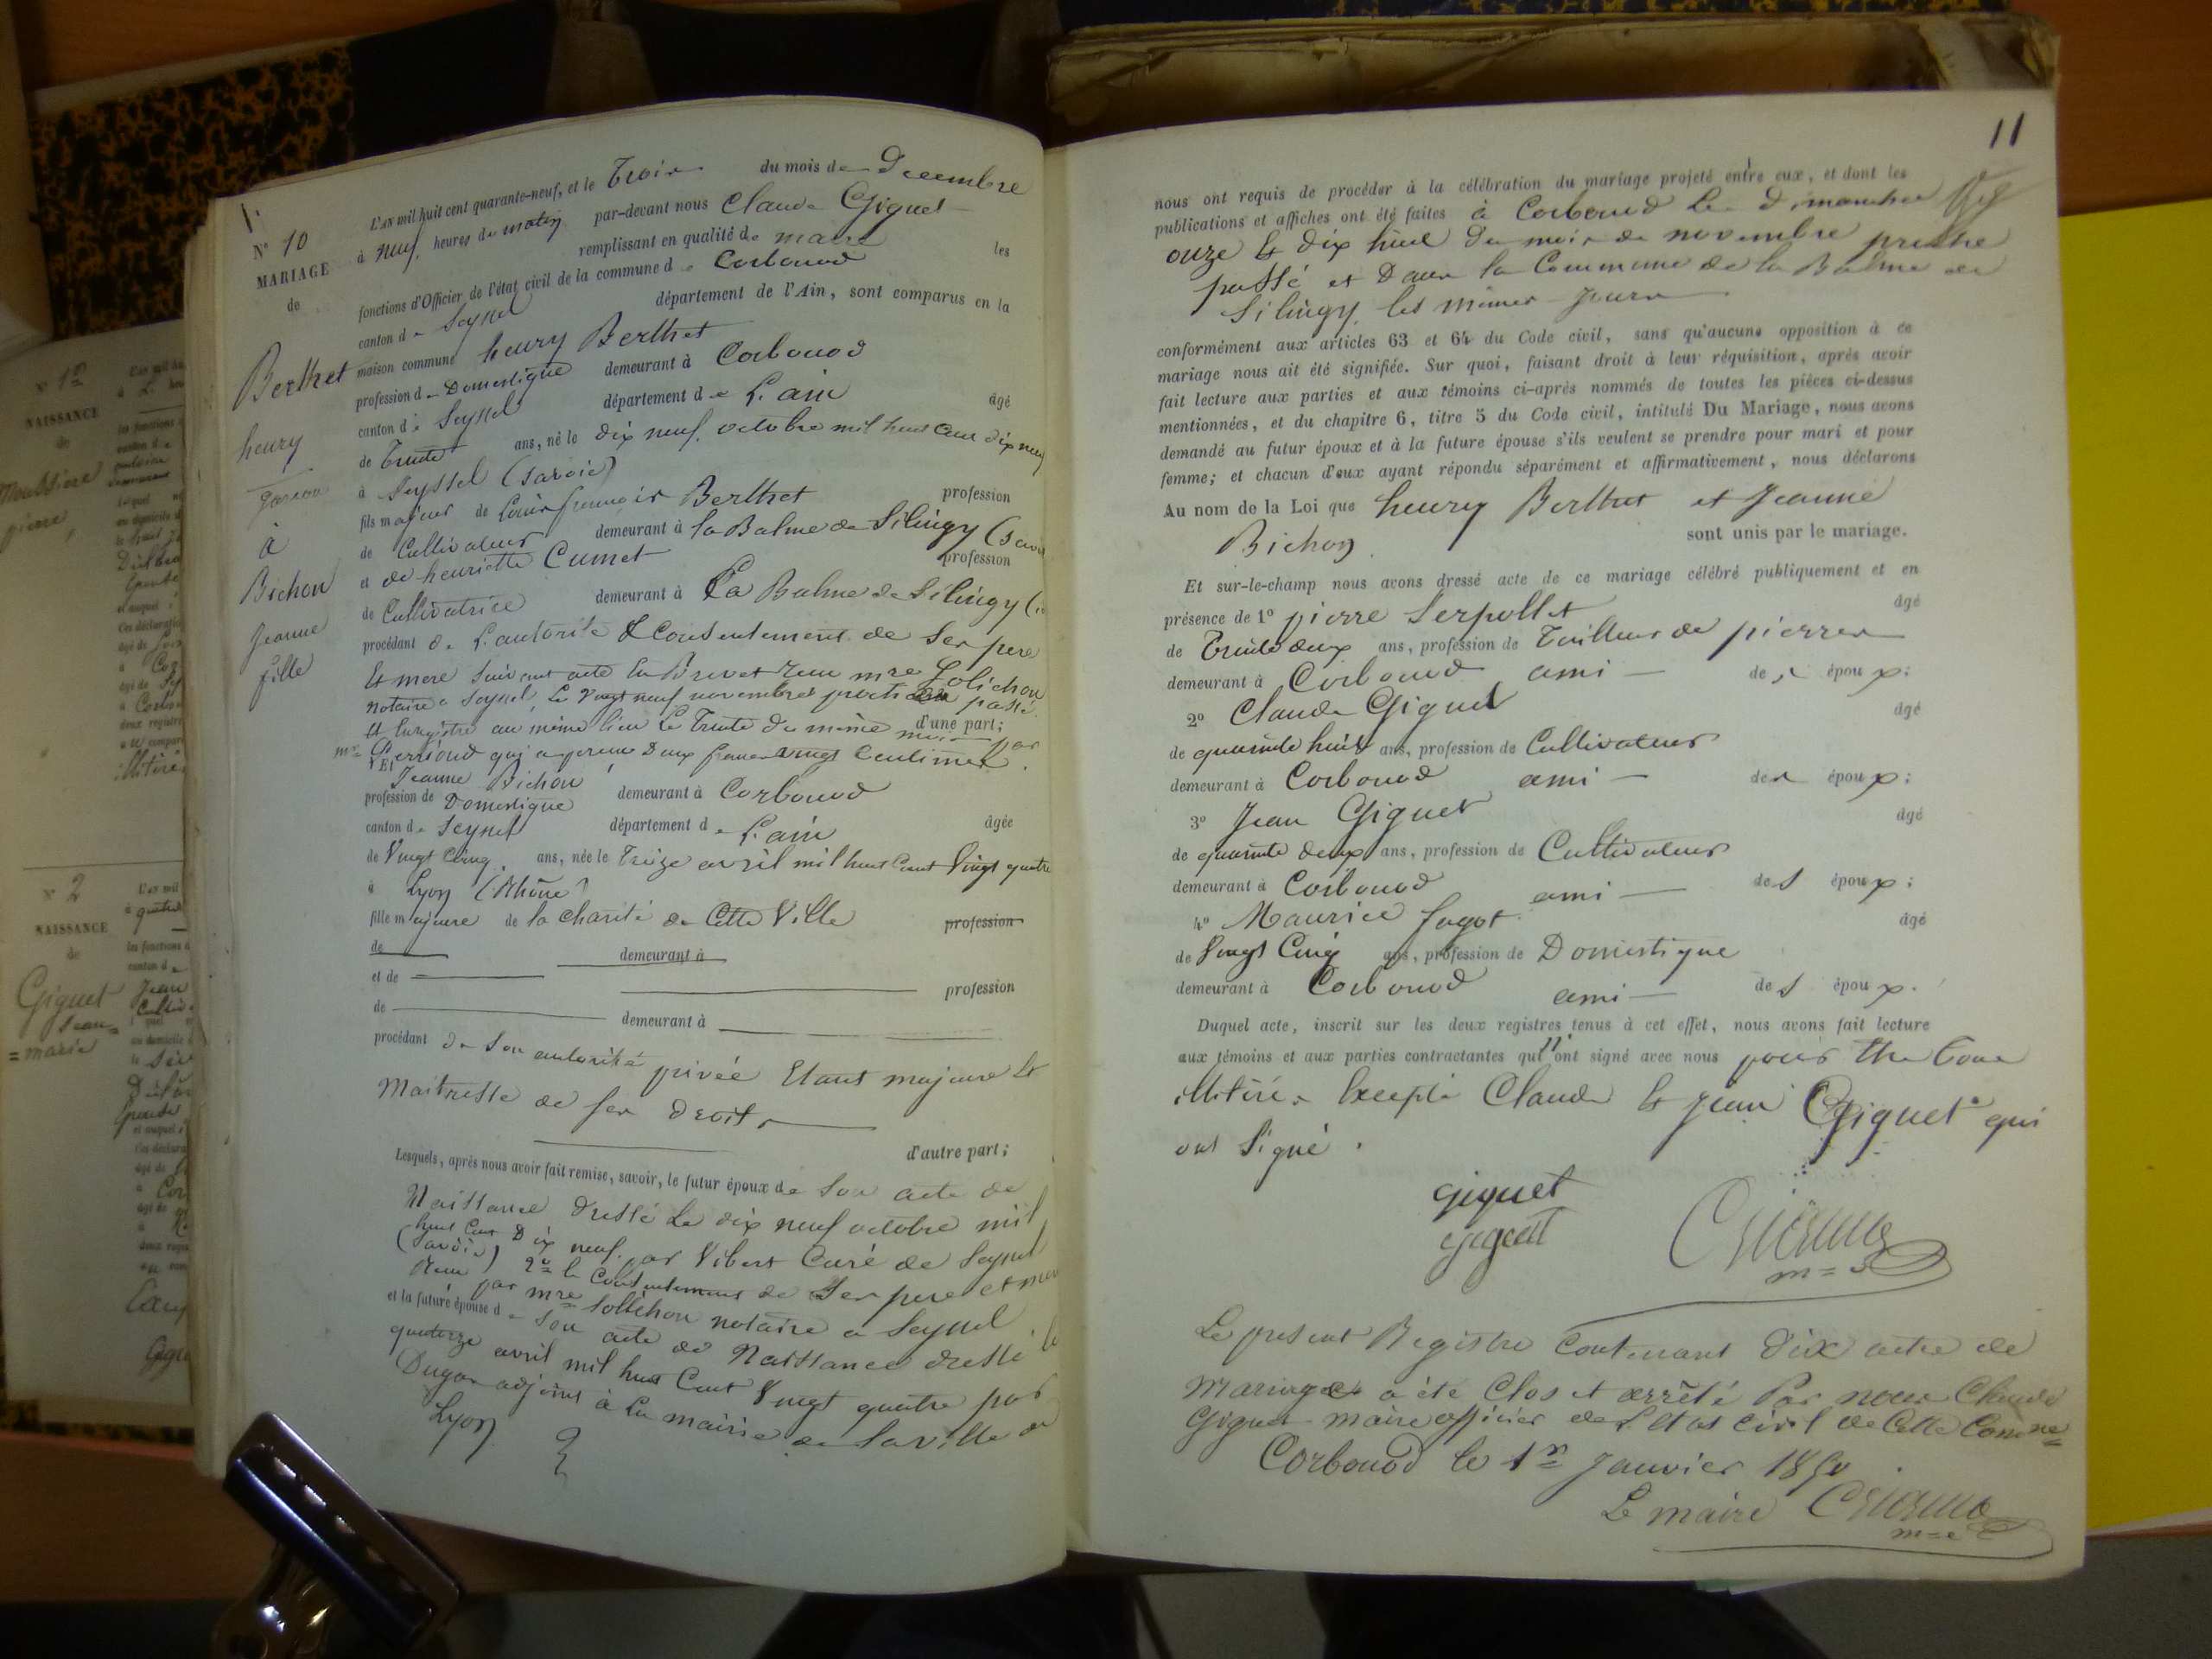 N° 10
MARIAGE
de
Berthet
henry
garcon
à
Bichon
Jeanne
fille
L'AN mil huit cent quarante-neuf, et le Trois du mois de Decembre
à neuf heures du matin par-devant nous Claude Giguet
remplissant en qualité de maire les
fonctions d'Officier de l'état civil de la commune de Corbonod
canton de Seyssel département de l'Ain, sont comparus en la
maison commune henry Berthet
profession de Domestique demeurant à Corbonod
canton de Seyssel département de L'ain âgé
de Trente ans, né le dix neuf octobre mil huit cent dix neuf
à Seyssel (Savoie)
fils majeur de Louis francois Berthet profession
de Cultivateur demeurant à la Balme de Silingy (Savoie
et de henriette Cumet profession
de Cultivatrice demeurant à La Balme de Silingy (
procédant de L'autorité & Consentement de Ses pere
Et mere Suivant acte En Brevet Reçu mre Lolichon
notaire a Seyssel, Le Vingt neuf novembre prochain passé
Et Enregistré au même lieu Le Trente du même mois par d'une part;
mr Perrioud qui a perçu Deux francs vingt Centimes.
Et Jeanne Bichon
profession de Domestique demeurant à Corbonod
canton de Seyssel département de L'ain âgée
de Vingt Cinq ans, née le Treize avril mil huit Cent Vingt quatre
à Lyon (Rhône)
fille majeure de la Charité de Cette Ville profession
de demeurant à
et de profession
de demeurant à
procédant de Son autorité privée Etant majeure Et
Maitresse de Ses Droits
d'autre part;
Lesquels, après nous avoir fait remise, savoir, le futur époux de Son acte de
Naissance Dressé Le dix neuf octobre mil
huit Cent Dix neuf par Vibert Curé de Seyssel
(Savoie) 2° le Consentement de Ses pere et mere
Reçu par mre Lolichon notaire a Seyssel
et la future épouse de Son acte de Naissance dressé le
quatorze avril mil huit Cent Vingt quatre par
Dugas adjoint à la mairie de la Ville de
Lyon
11
nous ont requis de procéder à la célébration du mariage projeté entre eux, et dont les
publications et affiches ont été faites à Corbonod Les Dimanches
onze Et dix huit Du mois de novembre proche
passé et Dans la Commune de la Balme de
Silingy, les mêmes Jours
conformément aux articles 63 et 64 du Code civil, sans qu'aucune opposition à ce
mariage nous ait été signifiée. Sur quoi, faisant droit à leur réquisition, après avoir
fait lecture aux parties et aux témoins ci-après nommés de toutes les pièces ci-dessus
mentionnées, et du chapitre 6, titre 5 du Code civil, intitulé Du Mariage, nous avons
demandé au futur époux et à la future épouse s'ils veulent se prendre pour mari et pour
femme; et chacun d'eux ayant répondu séparément et affirmativement, nous déclarons
Au nom de la Loi que henry Berthet et Jeanne
Bichon sont unis par le mariage.
Et sur-le-champ nous avons dressé acte de ce mariage célébré publiquement et en
présence de 1° pierre Serpollet âgé
de Trente deux ans, profession de Tailleur de pierres
demeurant à Corbonod ami des époux;
2° Claude Giguet âgé
de quarante huit ans, profession de Cultivateur
demeurant à Corbonod ami des époux;
3° Jean Giguet âgé
de quarante deux ans, profession de Cultivateur
demeurant à Corbonod ami des époux;
4° Maurice fagot âgé
de Vingt Cinq ans, profession de Domestique
demeurant à Corbonod ami des époux.
Duquel acte, inscrit sur les deux registres tenus à cet effet, nous avons fait lecture
aux témoins et aux parties contractantes qui n'ont signé avec nous pour Etre tous
illitérés Excepté Claude Et Jean Giguet qui
ont Signé.
Giguet
giguet
m=e
Le présent Registre Contenant Dix actes de
Mariages a été Clos et arrêté Par nous Claude
Giguet maire officier de L'Etat Civil de Cette Comne
Corbonod le 1er Janvier 1850
Le maire
m=e
N° 1er
NAISSANCE
de
pierre
N° 2
NAISSANCE
de
Giguet
Jean
=marie